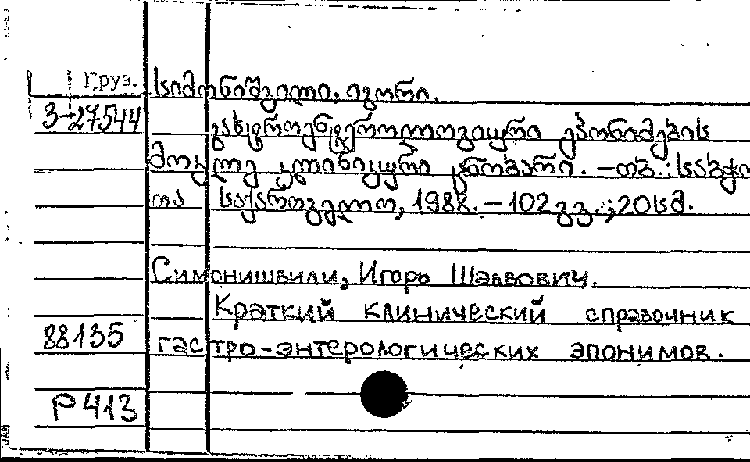 Груз. სიმონიშვილი, იგორი.
3-27544 გასტროენტეროლოგიური ეპონიმების
მოკლე კლინიკური ცნობარი. – თბ.: საბჭო
თა საქართველო, 1988. – 102 გვ.; 20სმ.
Симонишвили, Игорь Шалвович.
Краткий клинический справочник
88135 гастро-энтерологических эпонимов.
Р413